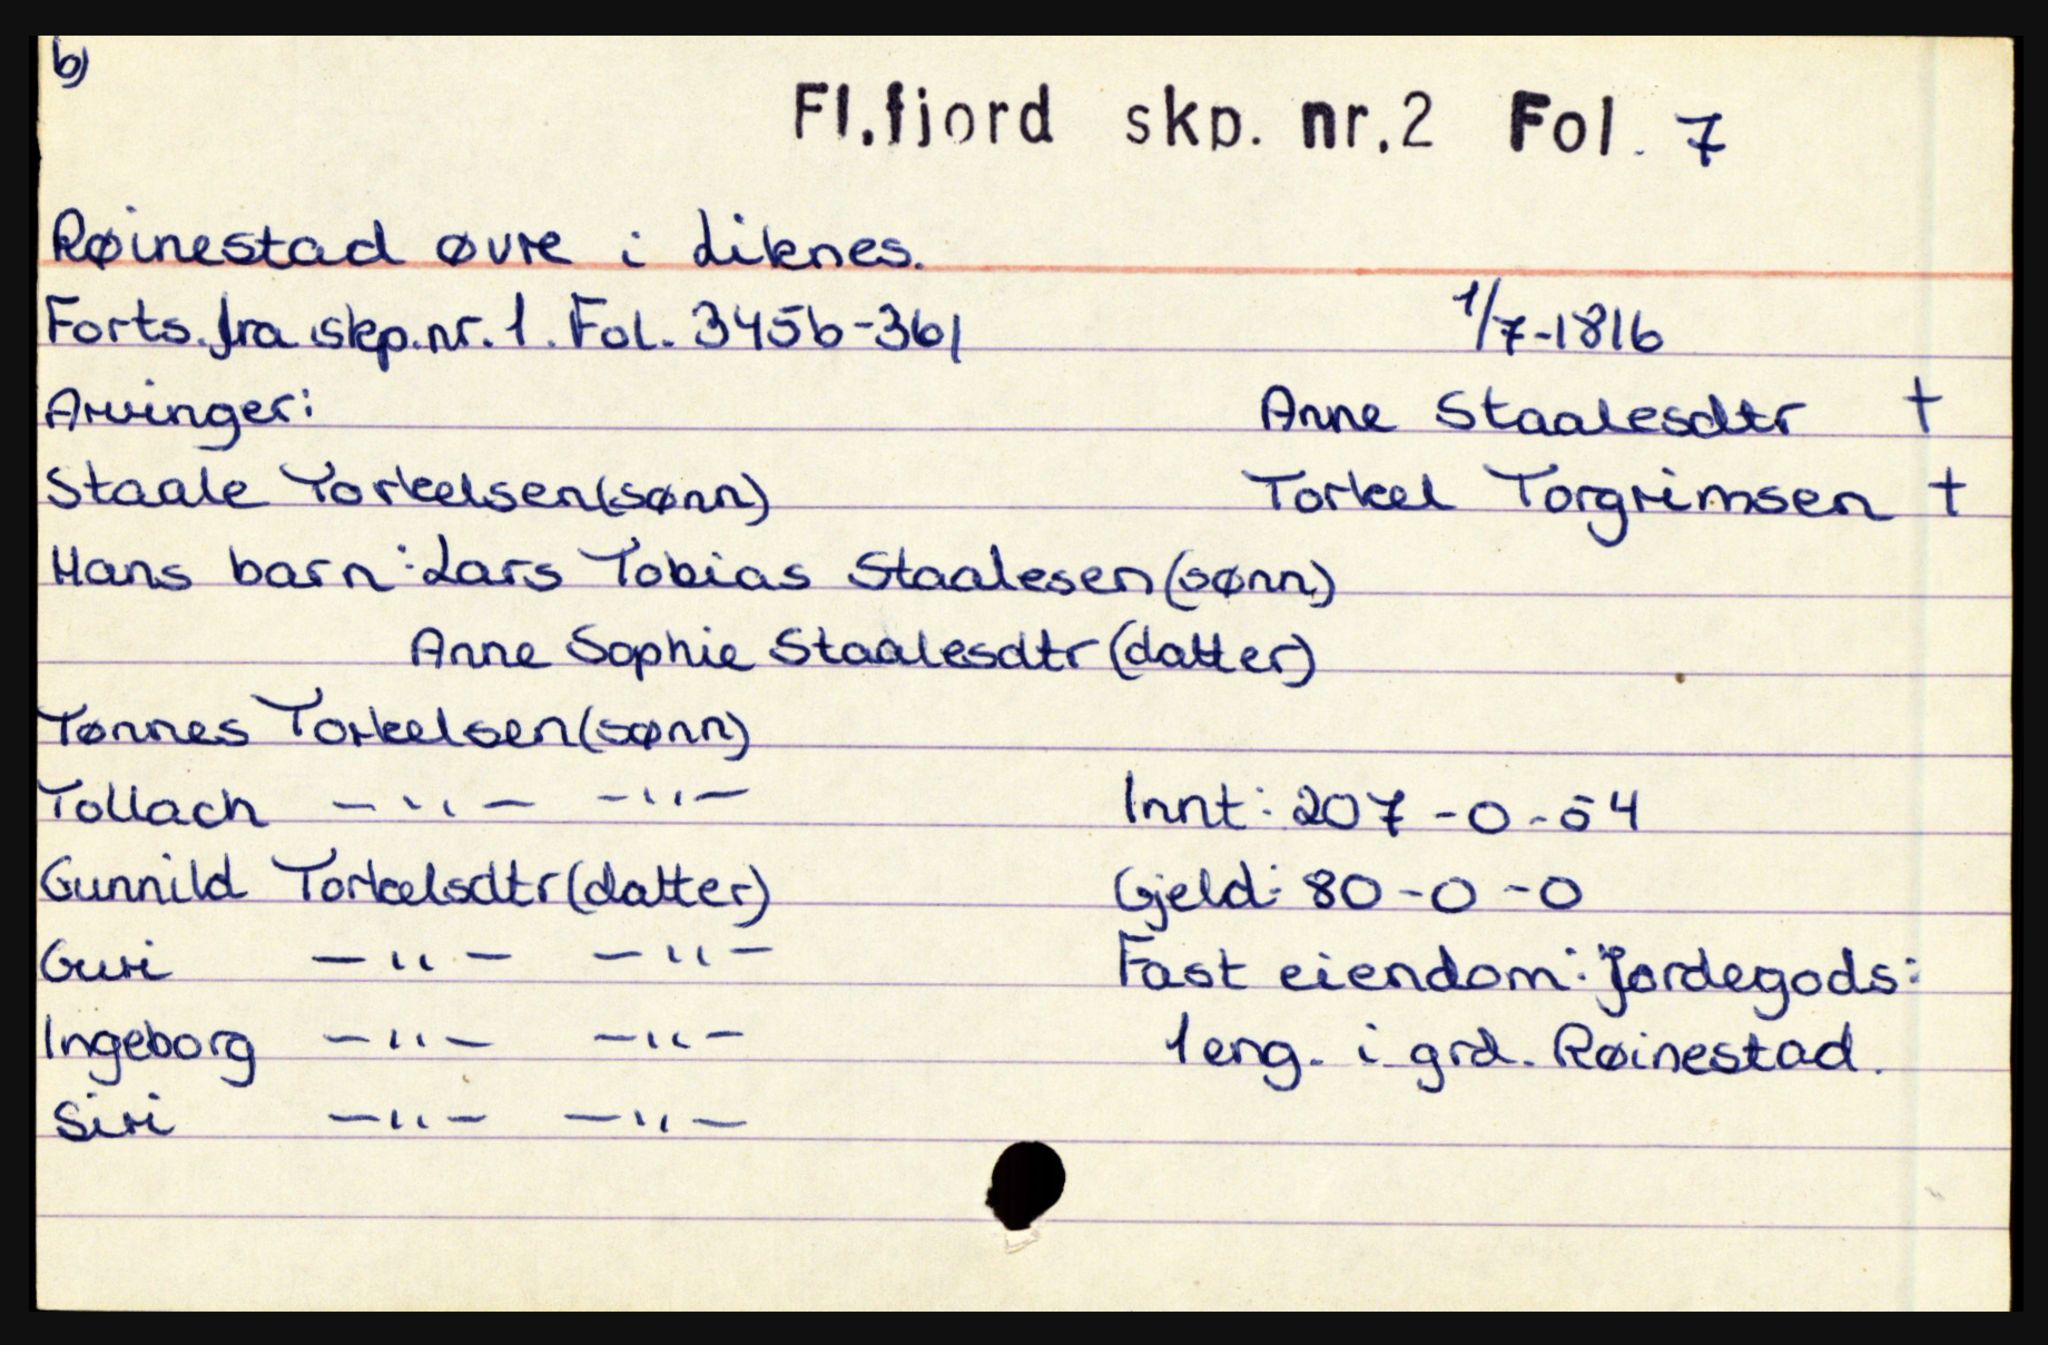 b)
Fl.fjord skp. nr.2 Fol. 7
Røinestad øvre i Liknes.
Forts. fra skp.nr. 1. Fol. 345b-361
1/7-1816
Arvinger:
Anne Staalesdtr †
Staale Torkelsen (sønn)
Torkel Torgrimsen †
Hans barn: Lars Tobias Staalesen (sønn)
Anne Sophie Staalesdtr (datter)
Tønnes Torkelsen (sønn)
Tollach —"— —"—
Innt: 207-0-54
Gunnild Torkelsdtr (datter)
Gjeld: 80-0-0
Guri —"— —"—
Fast eiendom: Jordegods:
Ingeborg —"— —"—
1 eng. i grd. Røinestad.
Siri —"— —"—